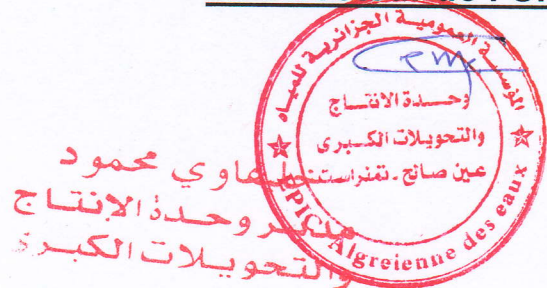 المؤسسة العمومية الجزائرية للمياه
وحدة الانتاج
والتحويلات الكبرى
عين صالح - تمنراست
EPIC Algreienne des eaux
محمود
مدير وحدة الإنتاج
والتحويلات الكبرى